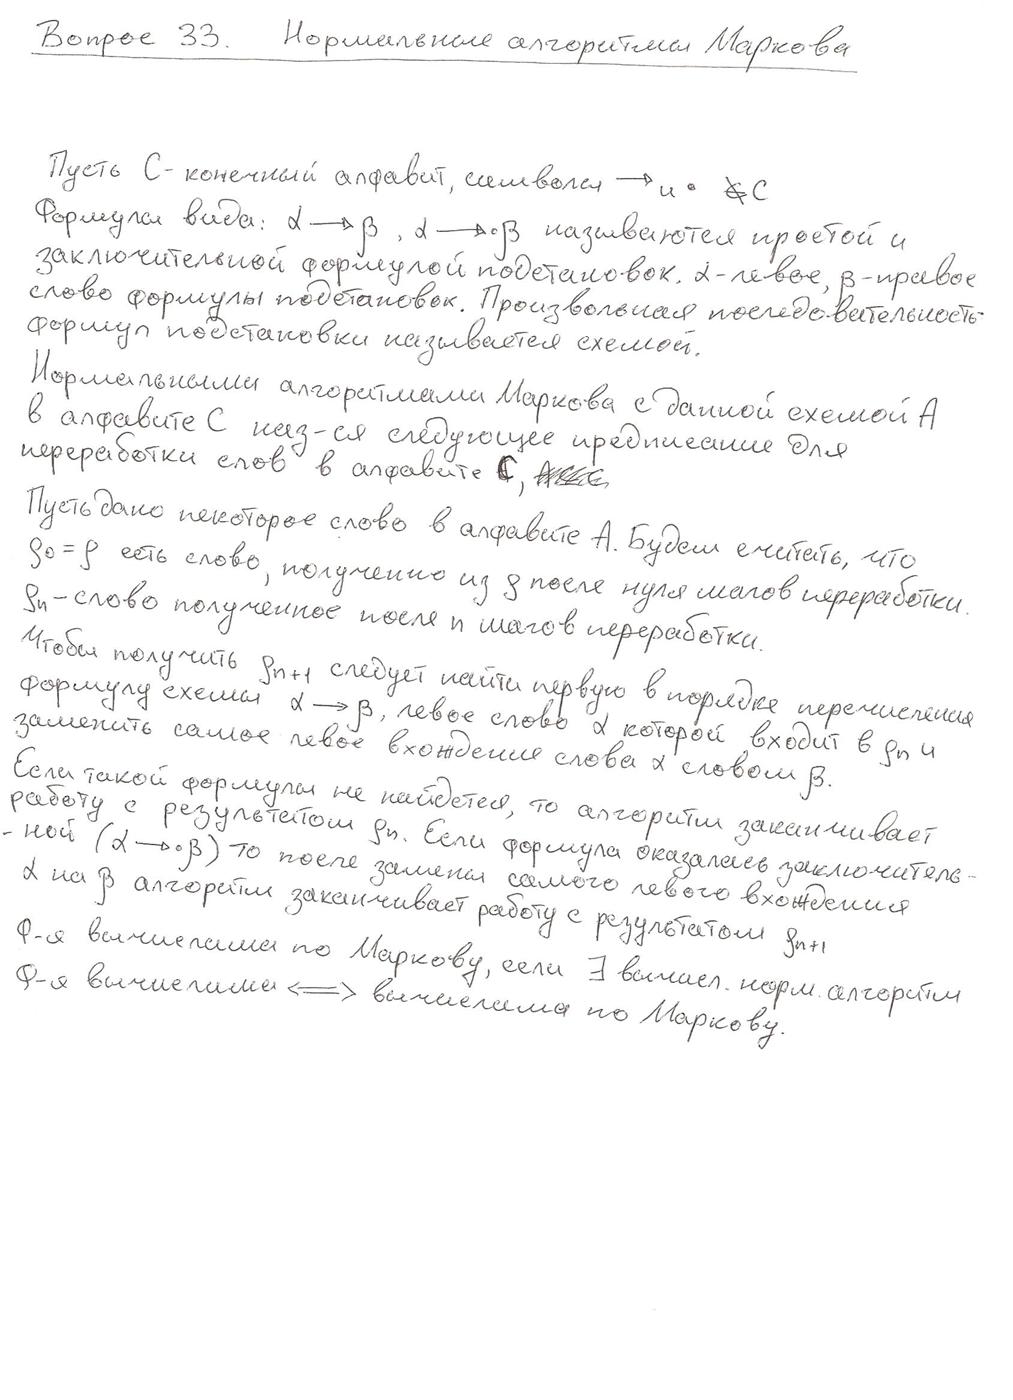 Вопрос 33. Нормальные алгоритмы Маркова
Пусть С - конечный алфавит, символы → и • ∉ С
Формулы вида: α → β, α → •β называются простой и
заключительной формулой подстановок. α-левое, β-правое
слово формулы подстановок. Произвольная последовательность
формул подстановки называется схемой.
Нормальными алгоритмами Маркова с данной схемой А
в алфавите С наз-ся следующее предписание для
переработки слов в алфавите С,
Пусть дано некоторое слово в алфавите А. Будем считать, что
ρ₀ = ρ есть слово, полученно из ρ после нуля шагов переработки.
ρn - слово полученное после n шагов переработки.
Чтобы получить ρn+1 следует найти первую в порядке перечисления
формулу схемы α → β, левое слово α которой входит в ρn и
заменить самое левое вхождение слова α словом β.
Если такой формулы не найдется, то алгоритм заканчивает
работу с результатом ρn. Если формула оказалась заключитель-
-ной (α → •β) то после замены самого левого вхождения
α на β алгоритм заканчивает работу с результатом ρn+1
Ф-я вычислима по Маркову, если ∃ вычисл. норм. алгоритм
Ф-я вычислима <=> вычислима по Маркову.